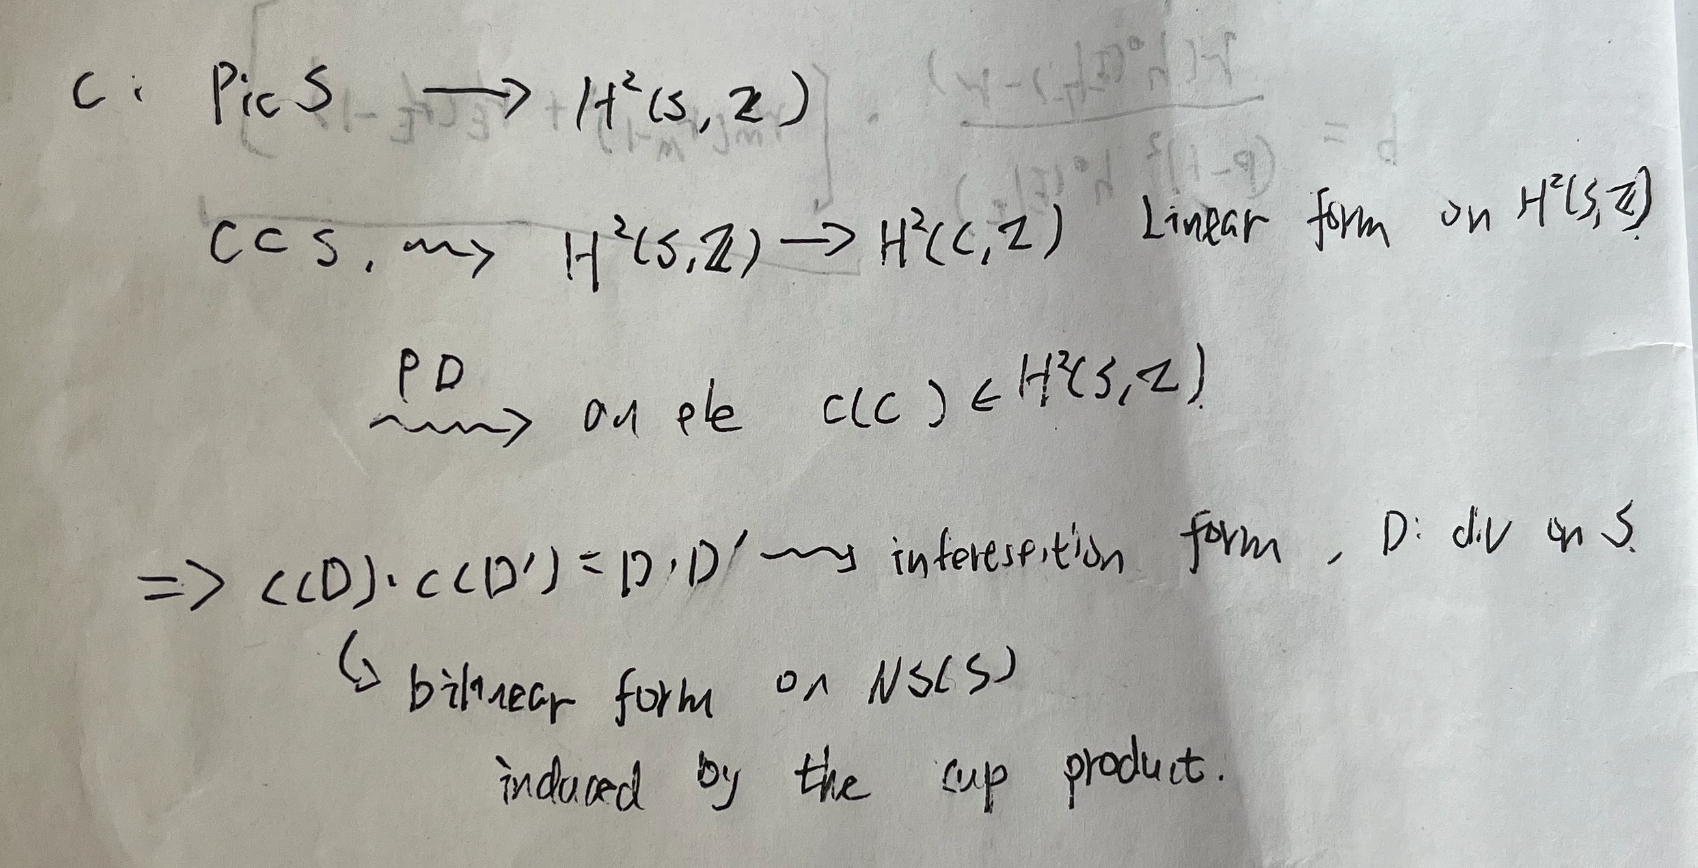 c: Pic S ⟶ H²(S, ℤ)
C ⊂ S, ⇝ H²(S, ℤ) → H²(C, ℤ) Linear form on H²(S, ℤ)
PD
⇝ an ele c(C) ∈ H²(S, ℤ)
=> c(D)·c(D') = D·D' ⇝ interesection form, D: div on S.
↳ bilinear form on NS(S)
induced by the cup product.